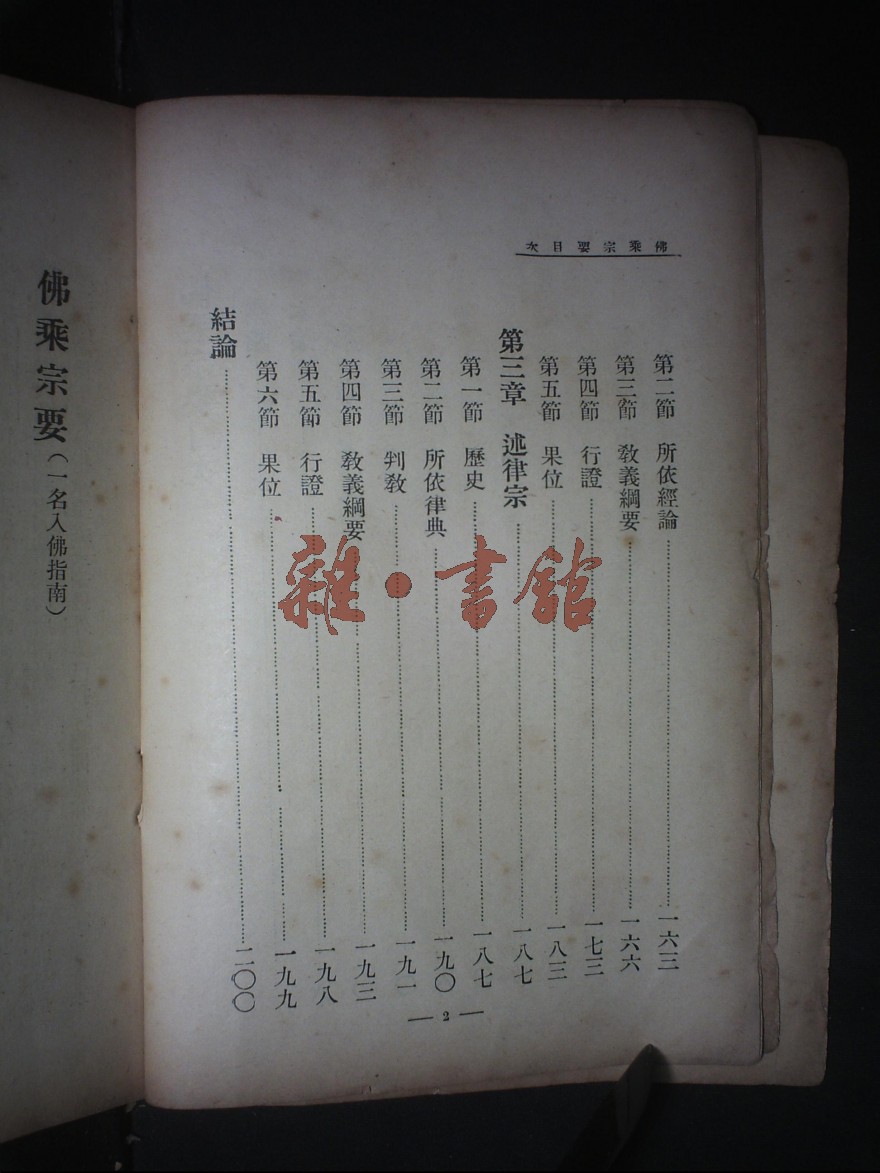 佛乘宗要目次
第二節 所依經論 一六三
第三節 敎義綱要 一六六
第四節 行證 一七三
第五節 果位 一八三
第三章 述律宗 一八七
第一節 歷史 一八七
第二節 所依律典 一九〇
第三節 判敎 一九一
第四節 敎義綱要 一九三
第五節 行證 一九八
第六節 果位 一九九
結論 二〇〇
— 2 —
佛乘宗要(一名入佛指南)
雜·書館